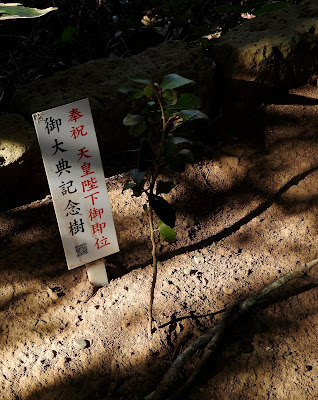 奉祝 天皇陛下御即位
御大典記念樹